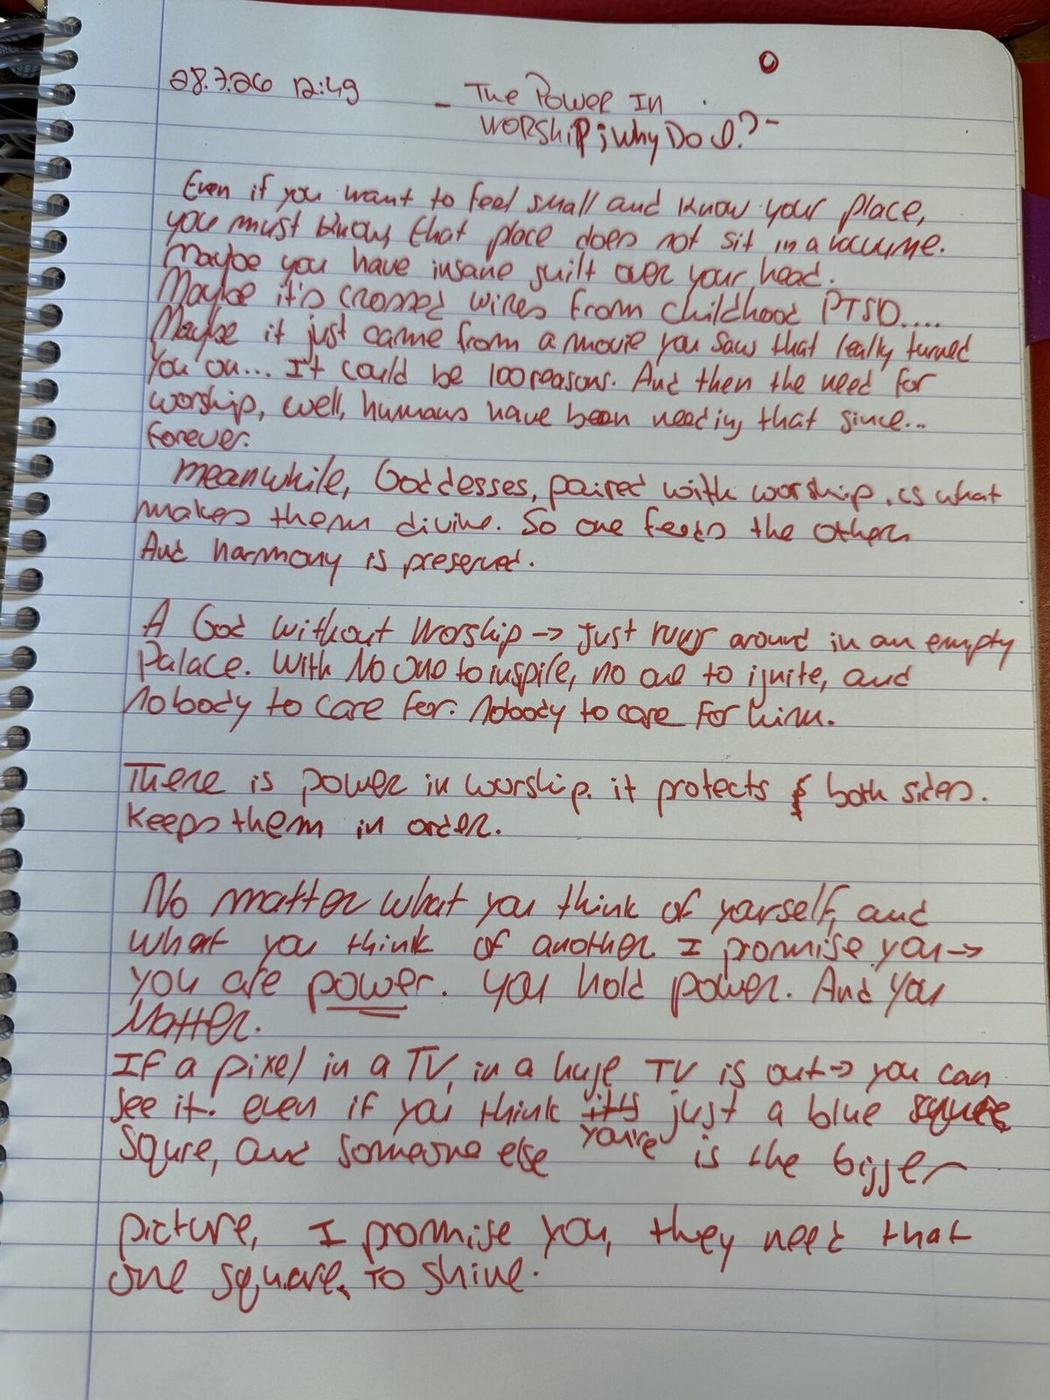 28.7.26 12:49
- The Power In
Worship; Why Do I? -
Even if you want to feel small and know your place,
you must know, that place does not sit in a vacuume.
Maybe you have insane guilt over your head.
Maybe it's crossed wires from childhood PTSD....
Maybe it just came from a movie you saw that really turned
You on... It could be 100 reasons. And then the need for
worship, well, humans have been needing that since...
forever.
Meanwhile, Goddesses, paired with worship, is what
makes them divine. So one feeds the other
And harmony is preserved.
A God without Worship → Just runs around in an empty
Palace. With No One to inspire, no one to ignite, and
nobody to care for. Nobody to care for him.
There is power in worship. it protects both sides.
Keeps them in order.
No matter what you think of yourself, and
what you think of another I promise you →
you are power. You hold power. And you
Matter.
If a pixel in a TV, in a huge TV is out → you can
see it. even if you think you're just a blue
Squre, and someone else is the bigger
picture, I promise you, they need that
one square, to shine.